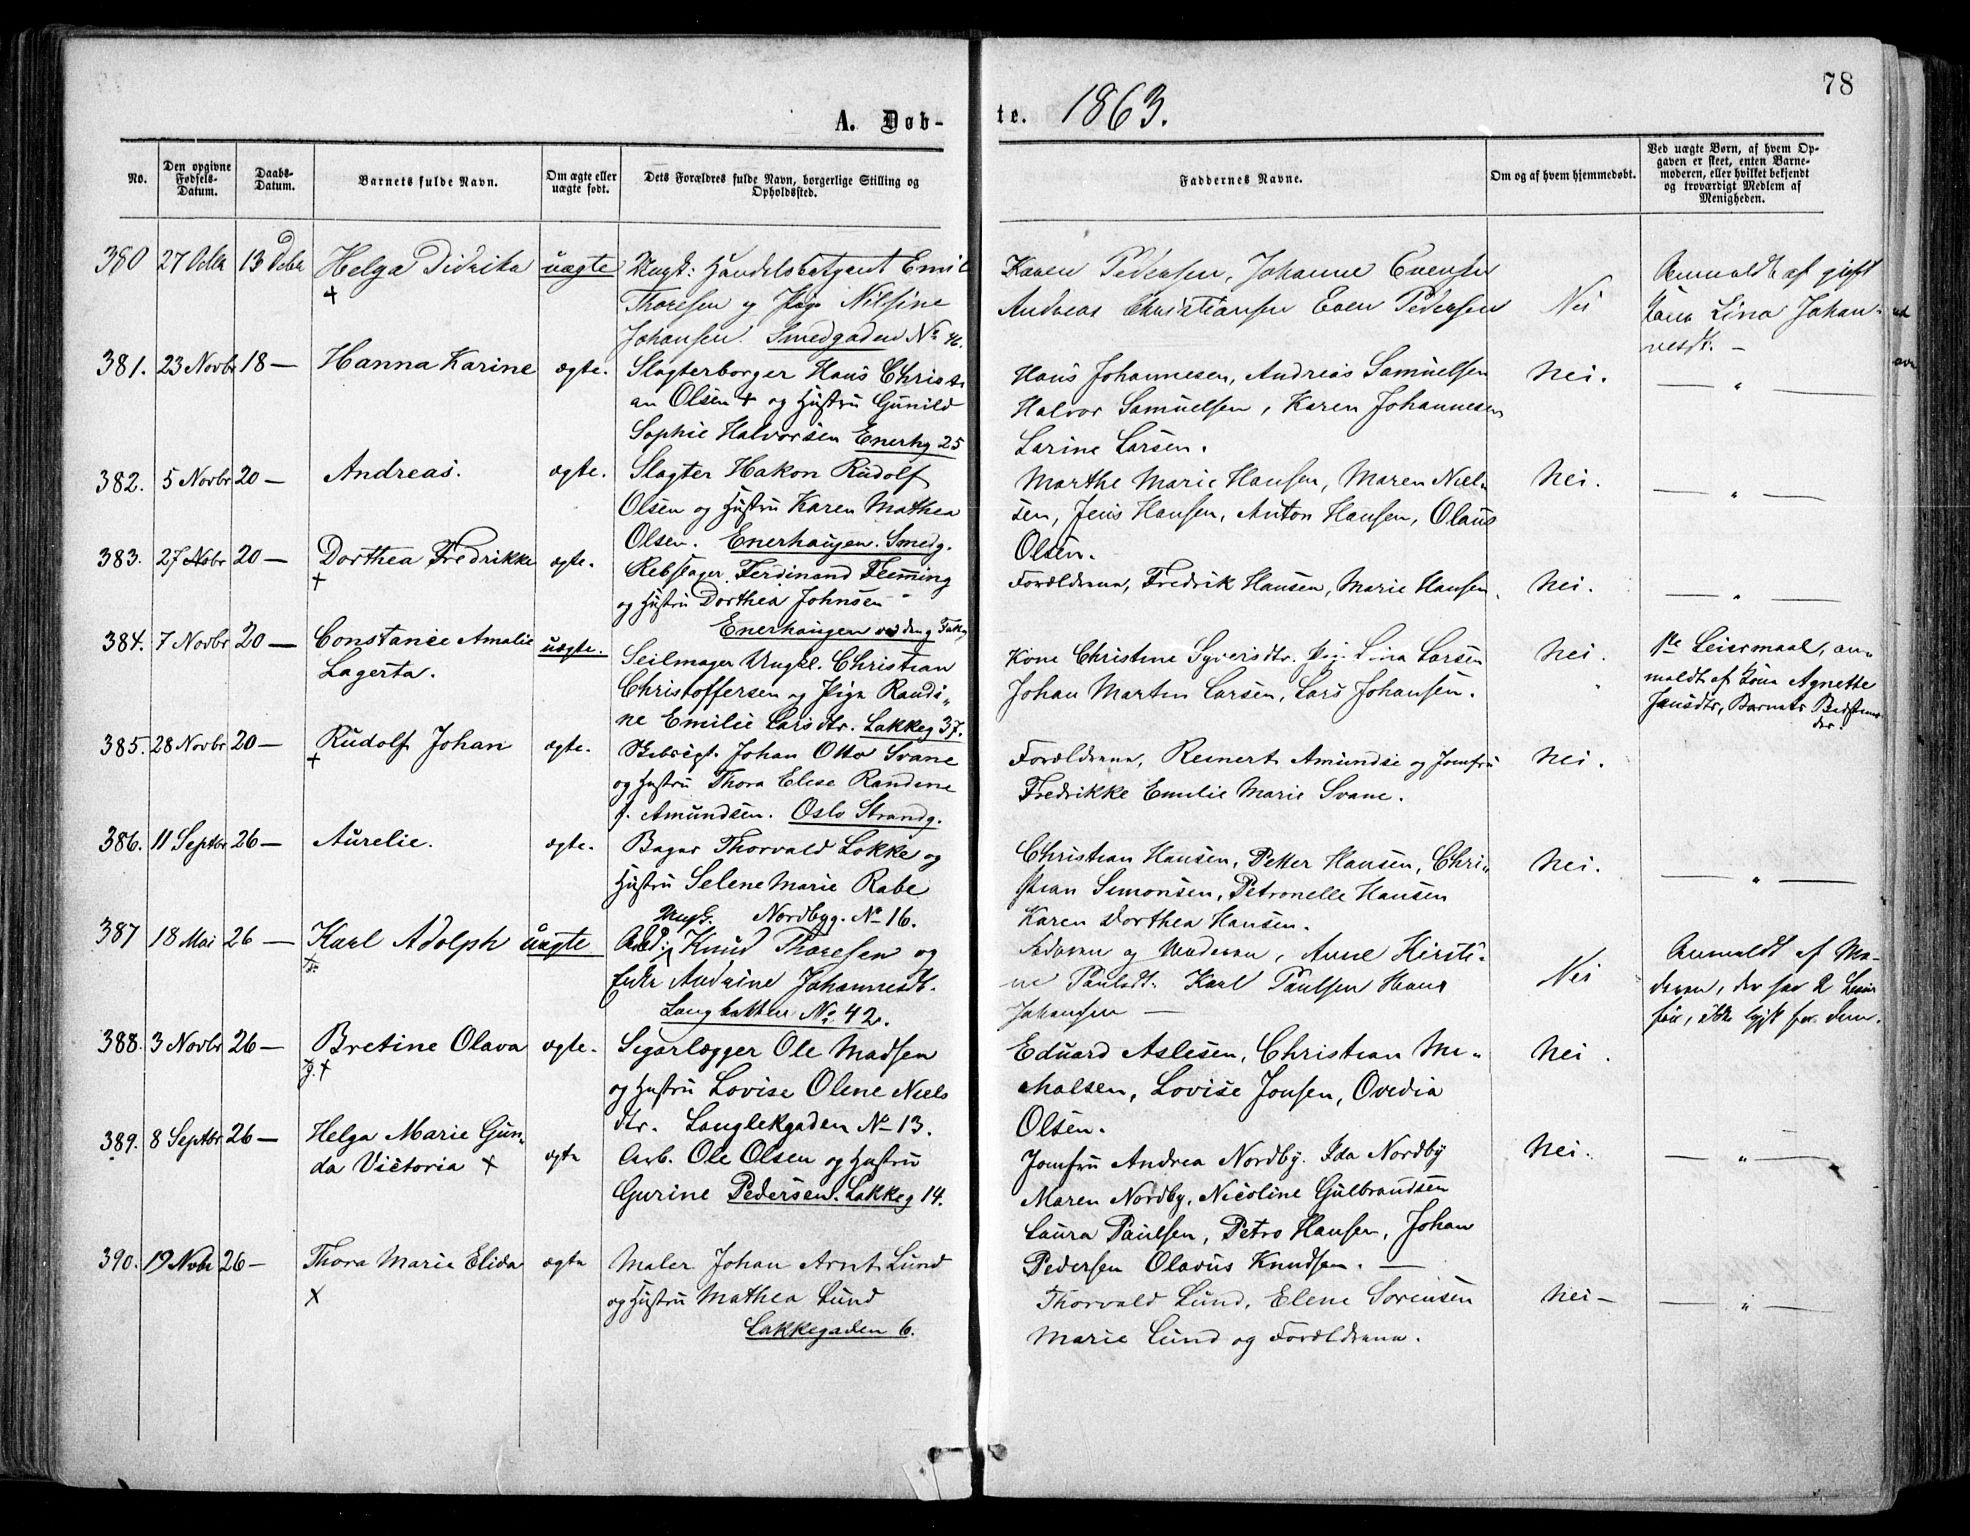 78
A. Døb-
te. 1863.
No.
Den opgivne Fødsels-Datum.
Daabs-Datum.
Barnets fulde Navn.
Om ægte eller uægte født.
Dets Forældres fulde Navn, borgerlige Stilling og Opholdssted.
Faddernes Navne.
Om og af hvem hjemmedøbt.
Ved uægte Børn, af hvem Op-
gaven er skeet, enten Barne-
moderen, eller hvilket bekjendt
og troværdigt Medlem af
Menigheden.
380 27 13 Helga Didrika uægte Ungk: Emil
Thoresen og Pige Nilsine
Johansen. Smedgaden No
Karen Pedersen, Johanne Evensen
Andreas Christiansen Even Pedersen
Nei
Anmeldt af gift
Kone Lina Johan-
nesdt. —
381. 23 Novbr 18 — Hanna Karine ægte. Slagterborger Hans Christi
an Olsen + og Hustru Gunild
Sophie Halvorsen Enerhg 25
Hans Johannesen, Andreas Samuelsen
Halvor Samuelsen, Karen Johannesen
Larine Larsen.
Nei.
— „ —
382. 5 Novbr 20 — Andreas. ægte. Slagter Hakon Rudolf
Olsen og Hustru Karen Mathea
Olsen. Enerhaugen. Smedg.
Marthe Marie Hansen, Maren Niel-
sen, Jens Hansen, Anton Hansen, Olaus
Olsen.
Nei.
— „ —
383. 27 Nobr 20 — Dorthea Fredrikke ægte. Rebslager Ferdinand Flemming
og Hustru Dorthea Johnsen
Enerhaugen
Forældrene, Fredrik Hansen, Marie Hansen.
Nei.
— „ —
384. 7 Novbr 20 — Constance Amalie
Lagerta.
uægte. Seilmager Ungkl. Christian
Christoffersen og Pige Randi-
ne Emilie Larsdtr. Lakkeg 37.
Kone Christine Syversdtr. Pig. Lina Larsen
Johan Martin Larsen, Lars Johansen.
Nei.
1ste Leiermaal, an-
meldt af Kone Agnette
Jensdtr, Barnets Bedstemo
der.
385. 28 Novbr 20 — Rudolf Johan ægte. Johan Otto Svane
og Hustru Thora Elise Randine
f. Amundsen. Oslo Strandg.
Forældrene, Reinert Amundse og Jomfru
Fredrikke Emilie Marie Svane.
Nei.
386. 11 Septbr 26 — Aurelie. ægte. Bager Thorvald Løkke og
Hustru Selene Marie Rabe
Nordbyg. No 16.
Christian Hansen, Petter Hansen, Chri-
stian Simonsen, Petronelle Hansen
Karen Dorthea Hansen.
Nei.
— „ —
387 18 Mai 26 — Karl Adolph uægte Ungk.
Arbd: Knud Thoresen og
Enke Andrine Johannesdt.
No. 42.
Faderen og Moderen, Anne Kirsti-
ne Paulsdt. Karl Paulsen Hans
Johansen —
Nei
Anmeldt af Mo-
deren, der har 2 Leier
før, ikke for dem.
388. 3 Novbr 26 — Bretine Olava ægte. Sigarlægger Ole Madsen
og Hustru Lovise Olene Niels
dtr. Langlekgaden No 13.
Eduard Aslesen, Christian Mi-
chalsen, Lovise Jonsen, Ovedia
Olsen.
Nei.
389. 8 Septbr 26 — Helga Marie Gun-
da Victoria + ægte Arb. Ole Olsen og Hustru
Gurine Pedersen. Lakkeg 14.
Jomfru Andrea Nordby. Ida Nordby
Maren Nordby, Nicoline Gulbrandsen
Laura Paulsen, Petro Hansen, Johan
Pedersen Olavus Knudsen. —
Nei.
— „ —
390. 19 Nobr 26 — Thora Marie Elida ægte Maler Johan Arnt Lund
og Hustru Mathea Lund
Lakkegaden 6.
Thorvald Lund, Elene Sorensen
Marie Lund og Forældrene.
Nei —
— „ —